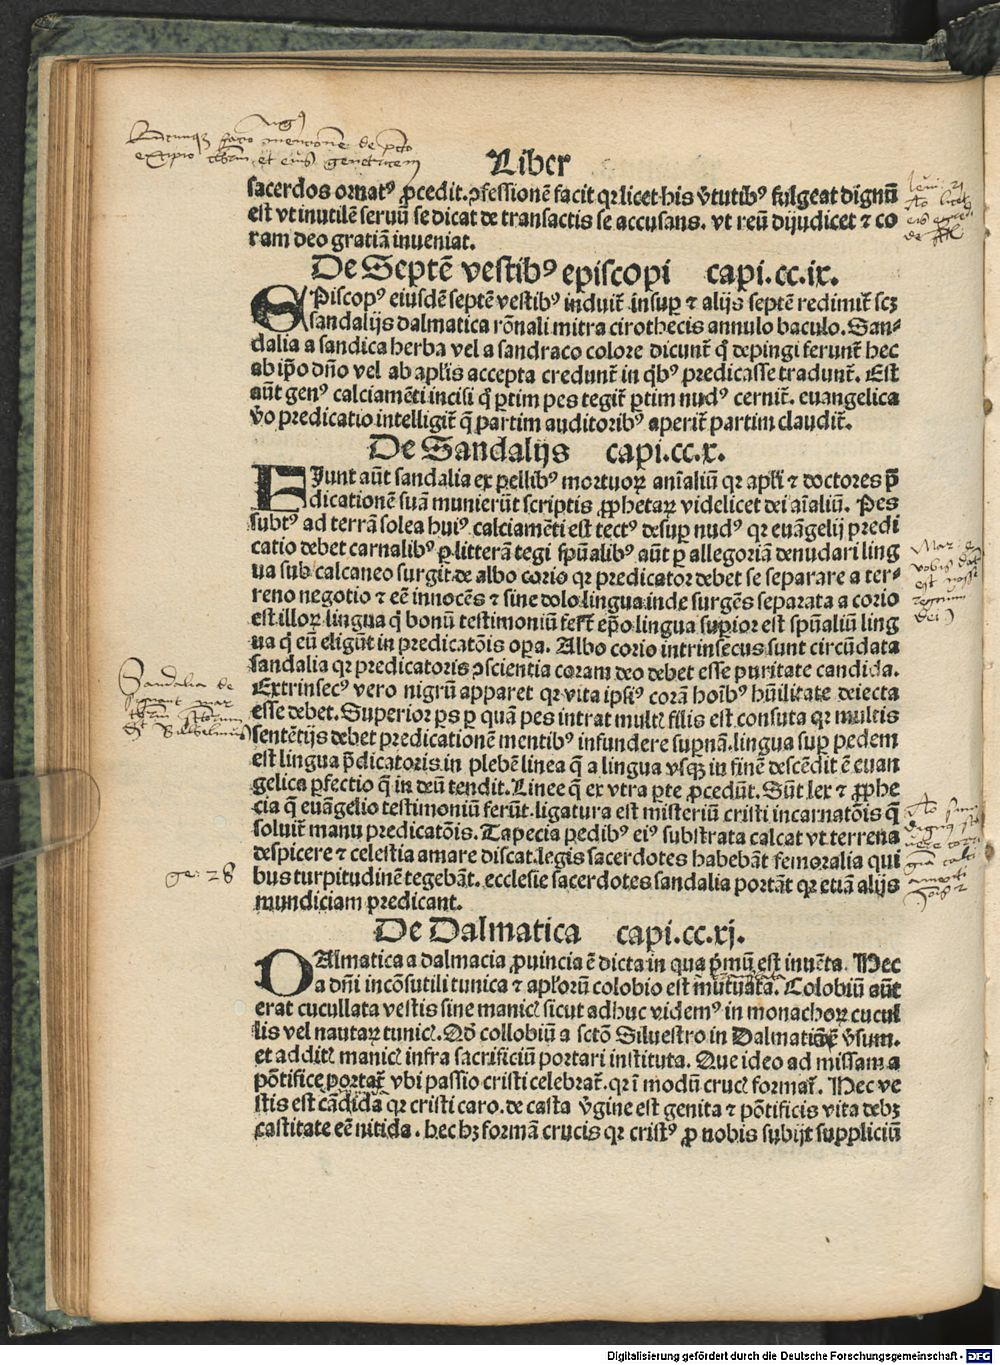 Liber
sacerdos ornatꝰ ꝓcedit. ꝯfessionē facit qꝛ licet his v̄tutibꝰ fulgeat dignū
est vt inutilē seruū se dicat de transactis se accusans. vt reū dijudicet ⁊ co
ram deo gratiā inueniat.
De Septē vestibꝰ episcopi capi.cc.ix.
Piscopꝰ eiusdē septē vestibꝰ induit̄ insuꝑ ⁊ alijs septē redimit̄ scꝫ
sandalijs dalmatica rōnali mitra cirothecis annulo baculo. San⸗
dalia a sandica herba vel a sandraco colore dicunt̄ q̄ depingi ferunt̄ hec
ab ip̄o dn̄o vel ab apl̄is accepta credunt̄ in q̇bꝰ predicasse tradunt̄. Est
aūt genꝰ calciamēti incisi q̊ ꝑtim pes tegit̄ ꝑtim nudꝰ cernit̄. euangelica
v̄o predicatio intelligit̄ q̄ partim auditoribꝰ aperit̄ partim claudit̄.
De Sandalijs capi.cc.x.
FIunt aūt sandalia ex pellibꝰ mortuoꝝ aīaliū qꝛ apl̄i ⁊ doctores p̄
dicationē suā munierūt scriptis ꝓphetaꝝ videlicet dei aīaliū. Pes
subtꝰ ad terrā solea huiꝰ calciamēti est tectꝰ desuꝑ nudꝰ qꝛ euāgelij predi
catio debet carnalibꝰ ꝑ litterā tegi sp̄ualibꝰ aūt ꝑ allegoriā denudari ling
ua sub calcaneo surgit de albo corio qꝛ predicator debet se separare a ter⸗
reno negotio ⁊ eē innocēs ⁊ sine dolo lingua inde surgēs separata a corio
est illoꝝ lingua q̇ bonū testimoniū fert̄ ep̄o lingua suꝑior est sp̄ualiū ling
ua q̇ eū eligūt in predicatōis oꝑa. Albo corio intrinsecus sunt circūdata
sandalia qꝛ predicatoris ꝯscientia coram deo debet esse puritate candida.
Extrinsecꝰ vero nigrū apparet qꝛ vita ipsiꝰ corā hoīb̄ꝰ hūilitate deiecta
esse debet. Superior ꝑs ꝑ quā pes intrat mult̄ filis est consuta qꝛ multis
sentētijs debet predicationē mentibꝰ infundere suꝑnā. lingua suꝑ pedem
est lingua p̄dicatoris in plebē linea q̄ a lingua vsqꝫ in finē descēdit ē euan
gelica ꝑfectio q̄ in deū tendit. Linee q̄ ex vtra ꝑte ꝓcedūt. Sūt lex ⁊ ꝓphe
cia q̄ euāgelio testimoniū ferūt. ligatura est misteriū cristi incarnatōis q̄
soluit̄ manu predicatōis. Tapecia pedibꝰ eiꝰ substrata calcat vt terrena
despicere ⁊ celestia amare discat. legis sacerdotes habebāt femoralia qui
bus turpitudinē tegebāt. ecclesie sacerdotes sandalia portāt qꝛ etiā alijs
mundiciam predicant.
De Dalmatica capi.cc.xj.
DAlmatica a dalmacia ꝓuincia ē dicta in qua p̄mū est inuēta. Hec
a dn̄i incōsutili tunica ⁊ apl̄orū colobio est mutuata. Colobiū aūt
erat cucullata vestis sine manicꝭ sicut adhuc videmꝰ in monachoꝝ cucul
lis vel nautaꝝ tunicꝭ. Qd̄ collobiū a sctō Siluestro in Dalmaticā ē v̄sum.
et additꝭ manicꝭ infra sacrificiū portari instituta. Que ideo ad missam a
pōtifice portat̄ vbi passio cristi celebrat̄. qꝛ ī modū crucꝭ format̄. Hec ve
stis est cādida qꝛ cristi caro. de casta v̄gine est genita ⁊ pōtificis vita debꝫ
castitate eē nitida. hec hꝫ formā crucis qꝛ cristꝰ ꝓ nobis subijt suppliciū
ge: 28
Digitalisierung gefördert durch die Deutsche Forschungsgemeinschaft - DFG